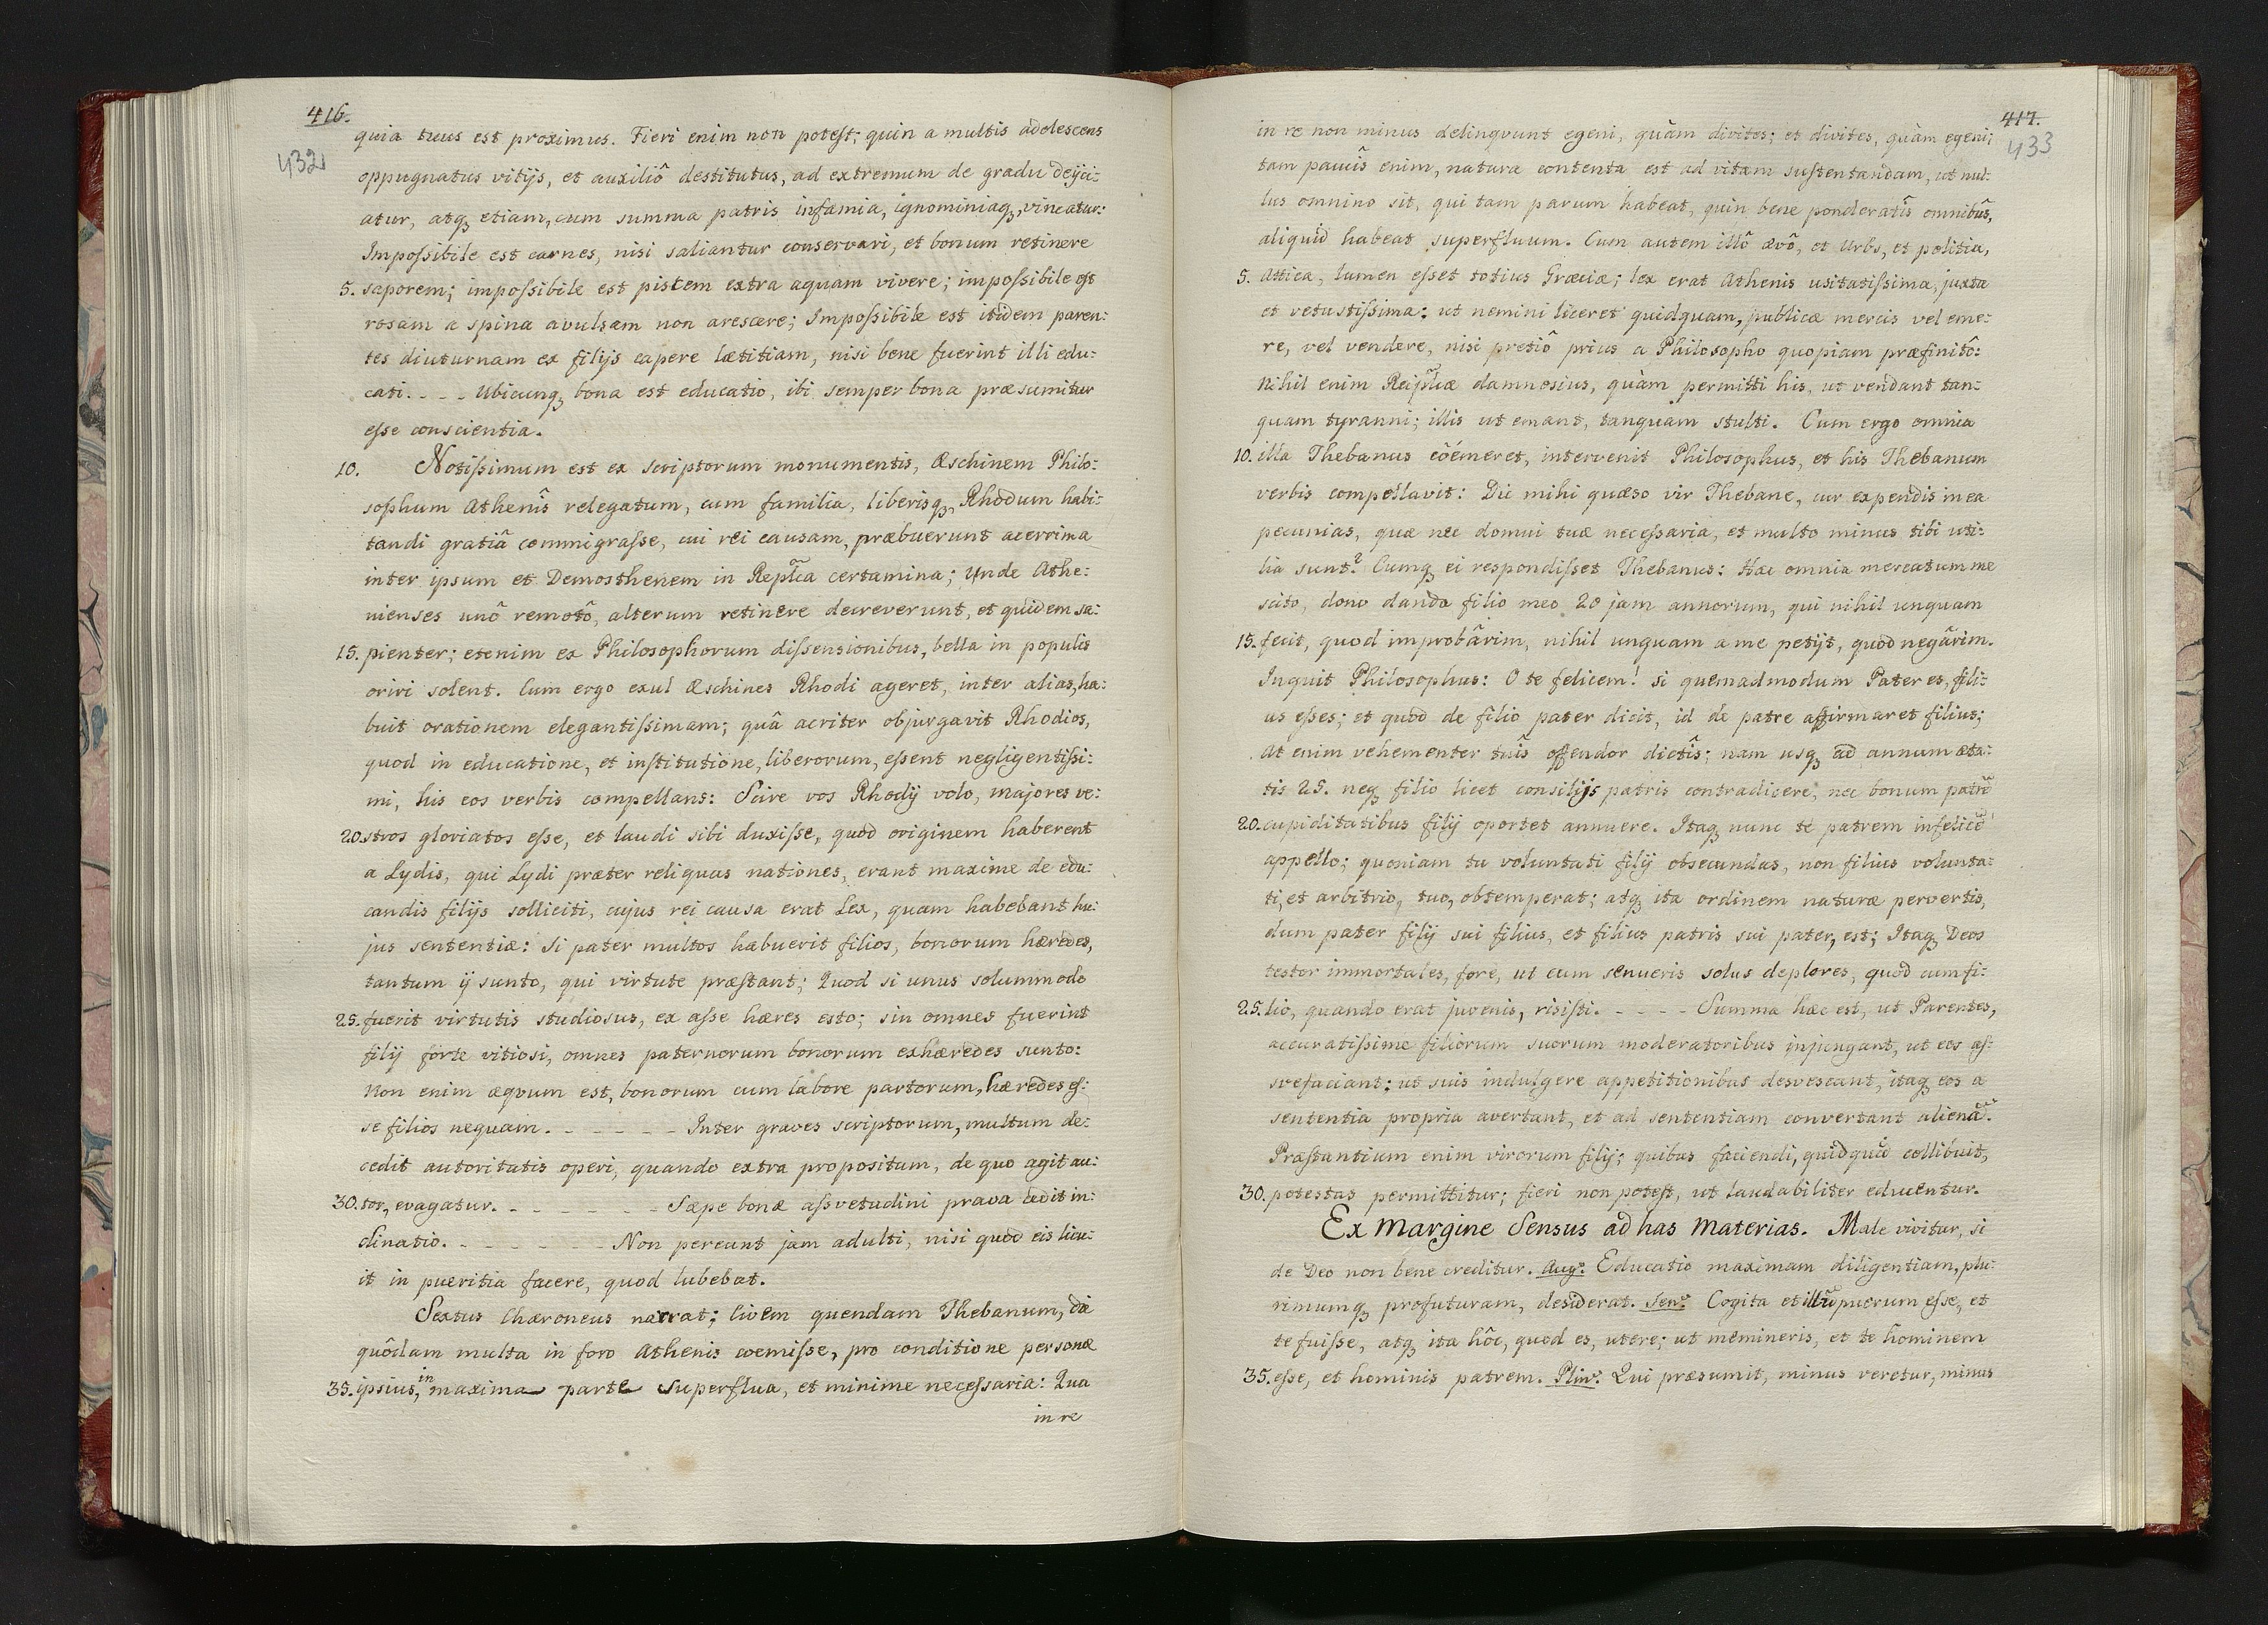 416.
432
quia tuus est proximus. Fieri enim non potest; quin a multis adolescens
oppugnatus vitijs, et auxiliô destitutus, ad extremum de gradu deiji:
atur, atq₃ etiam, cum summa patris infamia, ignominiaq₃, vincatur:
Impossibile est carnes, nisi saliantur conservari, et bonum retinere
5. saporem; impossibile est piscem extra aquam vivere; impossibile est
rosam a spina avulsam non arescere; Impossibile est itidem paren:
tes diuturnam ex filijs capere lætitiam, nisi bene fuerint illi edu:
cati. - - - Ubicunq₃ bona est educatio, ibi semper bona præsumitur
esse conscientia.
10. Notissimum est ex scriptorum monumentis, Æschinem Philo:
sophum Athenîs relegatum, cum familia, liberisq₃, Rhodum habi:
tandi gratiâ commigrasse, cui rei causam, præbuerunt acerrima
inter ipsum et Demosthenem in Replca certamina; Unde Athe:
nienses unô remotô, alterum retinere decreverunt, et quidem sa:
15. pienter; etenim ex Philosophorum dissensionibus, bella in populis
oriri solent. Cum ergo exul Æschines Rhodi ageret, inter alias, ha:
buit orationem elegantissimam; quâ acriter objurgavit Rhodios,
quod in educatione, et institutione, liberorum, essent negligentissi:
mi, his eos verbis compellans: Scire vos Rhodij volo, majores ve:
20. stros gloriatos esse, et laudi sibi duxisse, quod originem haberent
a Lydis, qui Lydi præter reliquas nationes, erant maxime de edu:
candis filijs solliciti, cujus rei causa erat Lex, quam habebant hu:
jus sententiæ: Si pater multos habuerit filios, bonorum hæredes,
tantum ij sunto, qui virtute præstant; Quod si unus solummodo
25. fuerit virtutis studiosus, ex asse hæres esto; sin omnes fuerint
filij forte vitiosi, omnes paternorum bonorum exhæredes sunto:
Non enim æqvum est, bonorum cum labore partorum, hæredes es:
se filios nequam. - - - - - - Inter graves scriptorum, multum de:
cedit autoritatis operi, quando extra propositum, de quo agit au:
30. tor, evagatur. - - - - - - Sæpe bonæ assvetudini prava cedit in:
clinatio. - - - - - - Non pereunt jam adulti, nisi quod eis licu:
it in pueritia facere, quod lubebat.
Sextus Chæroneus narrat; Civem quendam Thebanum, dié
quôdam multa in foro Athenis coemisse, pro conditione personæ
35. ipsius, in maxima parte superflua, et minime necessaria: Qua
in re
417.
433
in re non minus delinqvunt egeni, quàm divites; et divites, quàm egeni;
tam paucîs enim, natura contenta est ad vitam sustentandam, ut nul:
lus omnino sit, qui tam parum habeat, quin bene ponderatîs omnibûs,
aliquid habeat superfluum. Cum autem illô ævô, et Urbs, et politia,
5. Attica, lumen esset totius Græciæ; lex erat Athenis usitatissima, juxta
et vetustissima: ut nemini liceret quidquam, publicæ mercis vel eme:
re, vel vendere, nisi pretiô prius a Philosopho quopiam præfinitô:
Nihil enim Reiplcæ damnosius, quàm permitti his, ut vendant tan:
quam tyranni; illis ut emant, tanquam stulti. Cum ergo omnia
10. illa Thebanus cöémeret, intervenit Philosophus, et his Thebanum
verbis compellavit: Dic mihi quæso vir Thebane, cur expendis in ea
pecunias, quæ nec domui tuæ necessaria, et multo minus tibi uti:
lia sunt? Cumq₃ ei respondisset Thebanus: Hæc omnia mercatum me
scito, dono danda filio meo 20 jam annorum, qui nihil unquam
15. fecit, quod improbârim, nihil unquam a me petijt, quod negârim.
Inquit Philosophus: O te felicem! si quemadmodum Pater es, fili:
us esses; et quod de filio pater dicit, id de patre affirmaret filius;
At enim vehementer tuîs offendor dictîs; nam usq₃ ad annum æta:
tis 25. neq₃ filio licet consilijs patris contradicere, nec bonum patrē
20. cupiditatibus filij oportet annuere. Itaq₃ nunc te patrem infelicē
appello; quoniam tu voluntati filij obsecundas, non filius volunta:
ti, et arbitrio, tuo, obtemperat; atq₃ ita ordinem naturæ pervertis,
dum pater filij sui filius, et filius patris sui pater, est; Itaq₃ Deos
testor immortales, fore, ut cum senueris solus deplores, quod cum fi:
25. lio, quando erat juvenis, risisti. - - - - Summa hæc est, ut Parentes,
accuratissime filiorum suorum moderatoribus injungant, ut eos as:
svefaciant; ut suis indulgere appetitionibus desvescant, itaq₃ eos a
sententia propria avertant, et ad sententiam convertant alienā.
Præstantium enim virorum filij; quibus faciendi, quidquid collibuit,
30. potestas permittitur; fieri non potest, ut laudabiliter educentur.
Ex Margine Sensus ad has Materias. Male vivitur, si
de Deo non bene creditur. Aug: Educatio maximam diligentiam, plu:
rimumq₃ profuturam, desiderat. Sen: Cogita et illū puerum esse, et
te fuisse, atq₃ ita hôc, quod es, utere; ut memineris, et te hominem
35. esse, et hominis patrem. Plin: Qui præsumit, minus veretur, minus